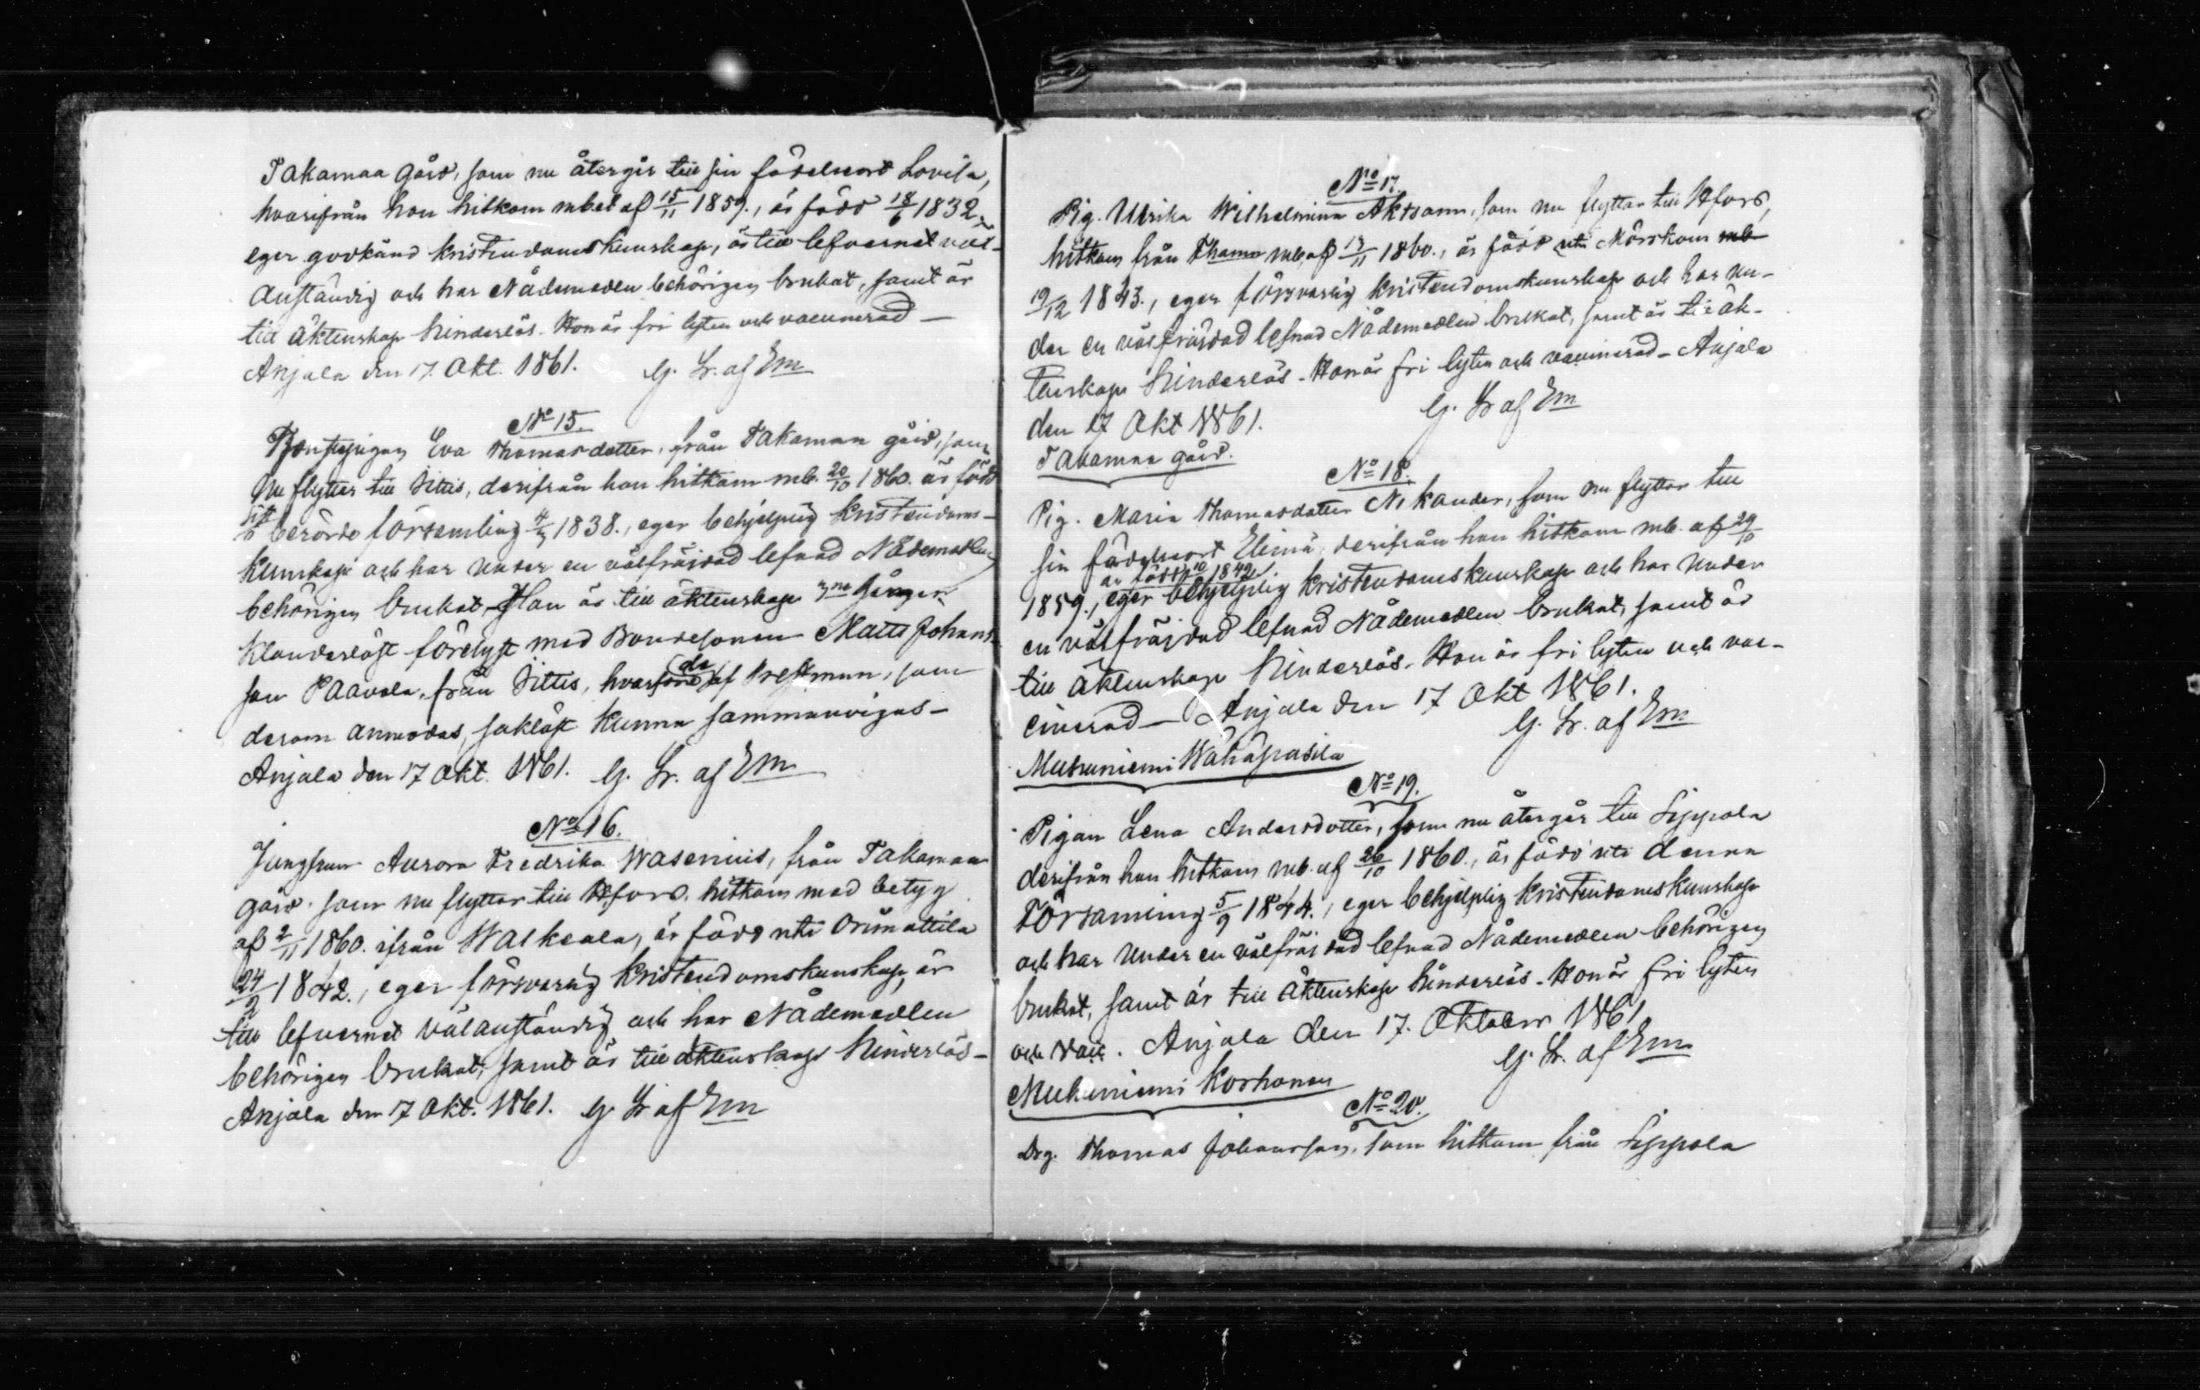 Takamaa gård, som nu återgår till sin födelseort Lovisa,
hvarifrån hon hitkom mbet af 15/11 1859., är född 18/6 1832.,
eger godkänd kristendomskunskap, är till lefvernet väl-
anständig och har Nådemedlen behörigen brukat, samt är
till äktenskap hinderlös. Hon är fri lyten och vaccinerad —
Anjala den 17. Okt. 1861. G. Lr. af Em
No 15.
Eva Thomasdotter, från Takamaa gård, som
nu flyttar till Sittis, derifrån hon hitkom mb. 20/10 1860. är född
i berörde församling 1838., eger behjelplig Kristendoms-
kunskap och har under en välfräjdad lefnad Nådemedlen
behörigen brukat. Hon är till äktenskap 3ne gånger
klanderlöst förelyst med Bondesonen Matts Johans-
son Paavola, från Sittis, af Prestman, som
derom anmodas, saklöst kunna sammanvigas —
Anjala den 17 Okt. 1861. G. Lr. af Em
No 16.
Jungfrun Aurora Fredrika Wasenius, från Takamaa
gård. som nu flyttar till Hfors. hitkom med betyg
af 2/11 1860. ifrån Walkeala, är född uti Orimattila
24/9 1842., eger försvarlig kristendomskunskap, är
till lefvernet välanständig och har Nådemedlen
behörigen brukat, samt är till äktenskap hinderlös —
Anjala den 17 Okt. 1861. G Lr af Em
No 17.
Pig. Ulrika Wilhelmina Aktsann, som nu flyttar till Hfors,
hitkom från mb. af 1860., är född uti Mörskom mb
19/12 1843., eger försvarlig kristendomskunskap och har un-
der en välfräjdad lefnad Nådemedlen brukat, samt är till äk-
tenskap hinderlös. Hon är fri lyten och vaccinerad — Anjala
den 17 Okt 1861. G. Lr af Em
Takamaa gård.
No 18.
Pig. Maria Thomasdotter Nikander, som nu flyttar till
sin födelseort Elimä, derifrån hon hitkom mb. af 29/10
är född 1842.
1859., eger behjelplig kristendomskunskap och har under
en välfräjdad lefnad Nådemedlen brukat, samt är
till äktenskap hinderlös. Hon är fri lyten och vac-
cinerad — Anjala den 17 Okt 1861.
G. Lr. af Em
Mukuniemi Wähäpasila
No 19.
Pigan Lena Andersdotter, som nu återgår till Sippola
derifrån hon hitkom mb. af 26/10 1860., är född uti denna
Församling 5/9 1844., eger behjelplig kristendomskunskap
och har under en välfräjdad lefnad Nådemedlen behörigen
brukat, samt är till äktenskap hinderlös. Hon är fri lyten
och vacc. Anjala den 17. Oktober 1861
G. Lr. af Em
Mukuniemi Korhonen
No 20.
Drg. Thomas Johansson, som hitkom från Sippola